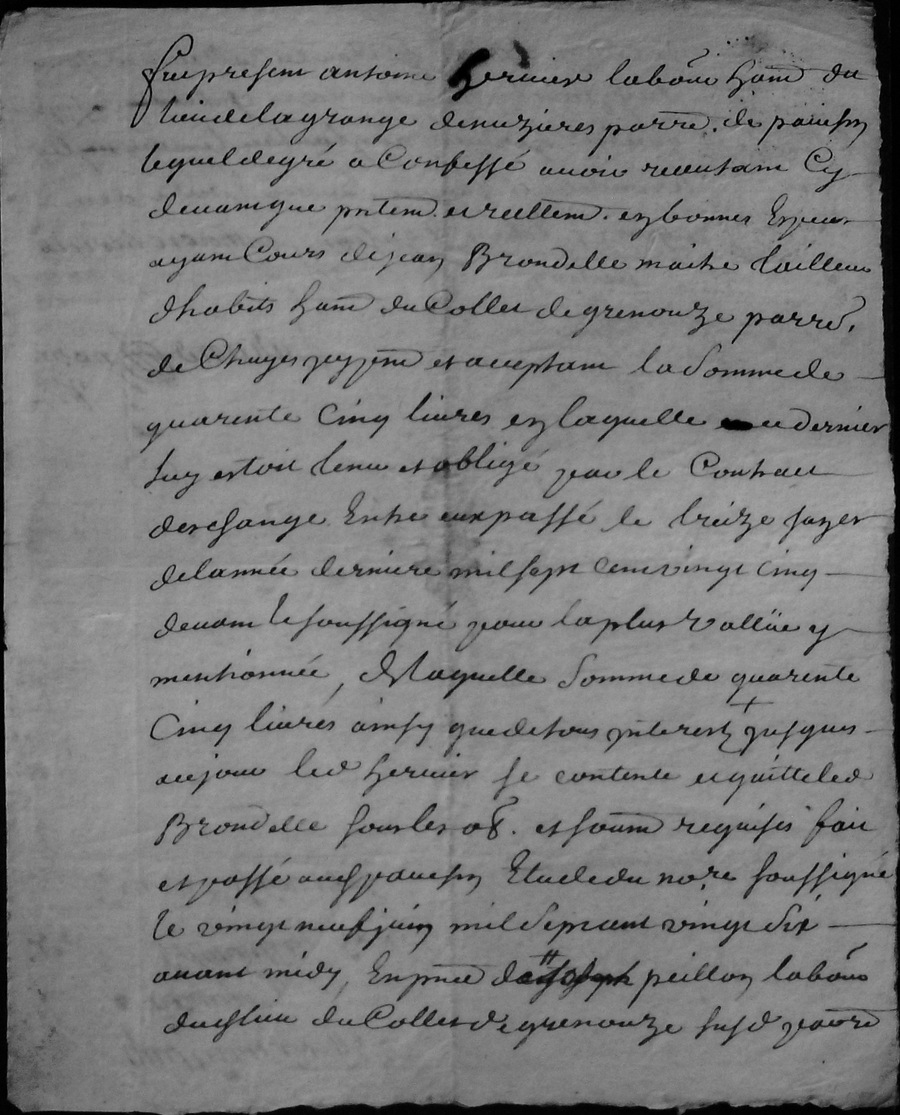 fut present antoine hernier labôur hant du
lieu de la grange denuzieres parre. de
lequel de gré a Confessé avoir recu tant Cy
devant que pntem. et reellem. en bonnes Especes
ayant Cours de jean Brondelle maitre tailleur
d'habits hant du Collet de grenouze parre.
de Chuyes pnt et aceptant la Somme de
quarente Cinq livres en laquelle ce dernier
luy estoit tenu et obligé par le Contract
deschange Entre eux passé le treize
de lannée derniere mil sept cent vingt cinq
devant le soussigné pour la plus vallüe y
mentionnée, de laquelle Somme de quarente
Cinq livres ainsy que de tous jnterest + jusques
au jour led hernier se contente et quitte led
Brondelle sous les o8. et soum requises fait
et passé aud Etude du nore soussigné
le vingt neuf juin mil sept cent vingt six
avant midy, En pnce de peillon labôur
dud lieu du Collet de grenouze susd parre